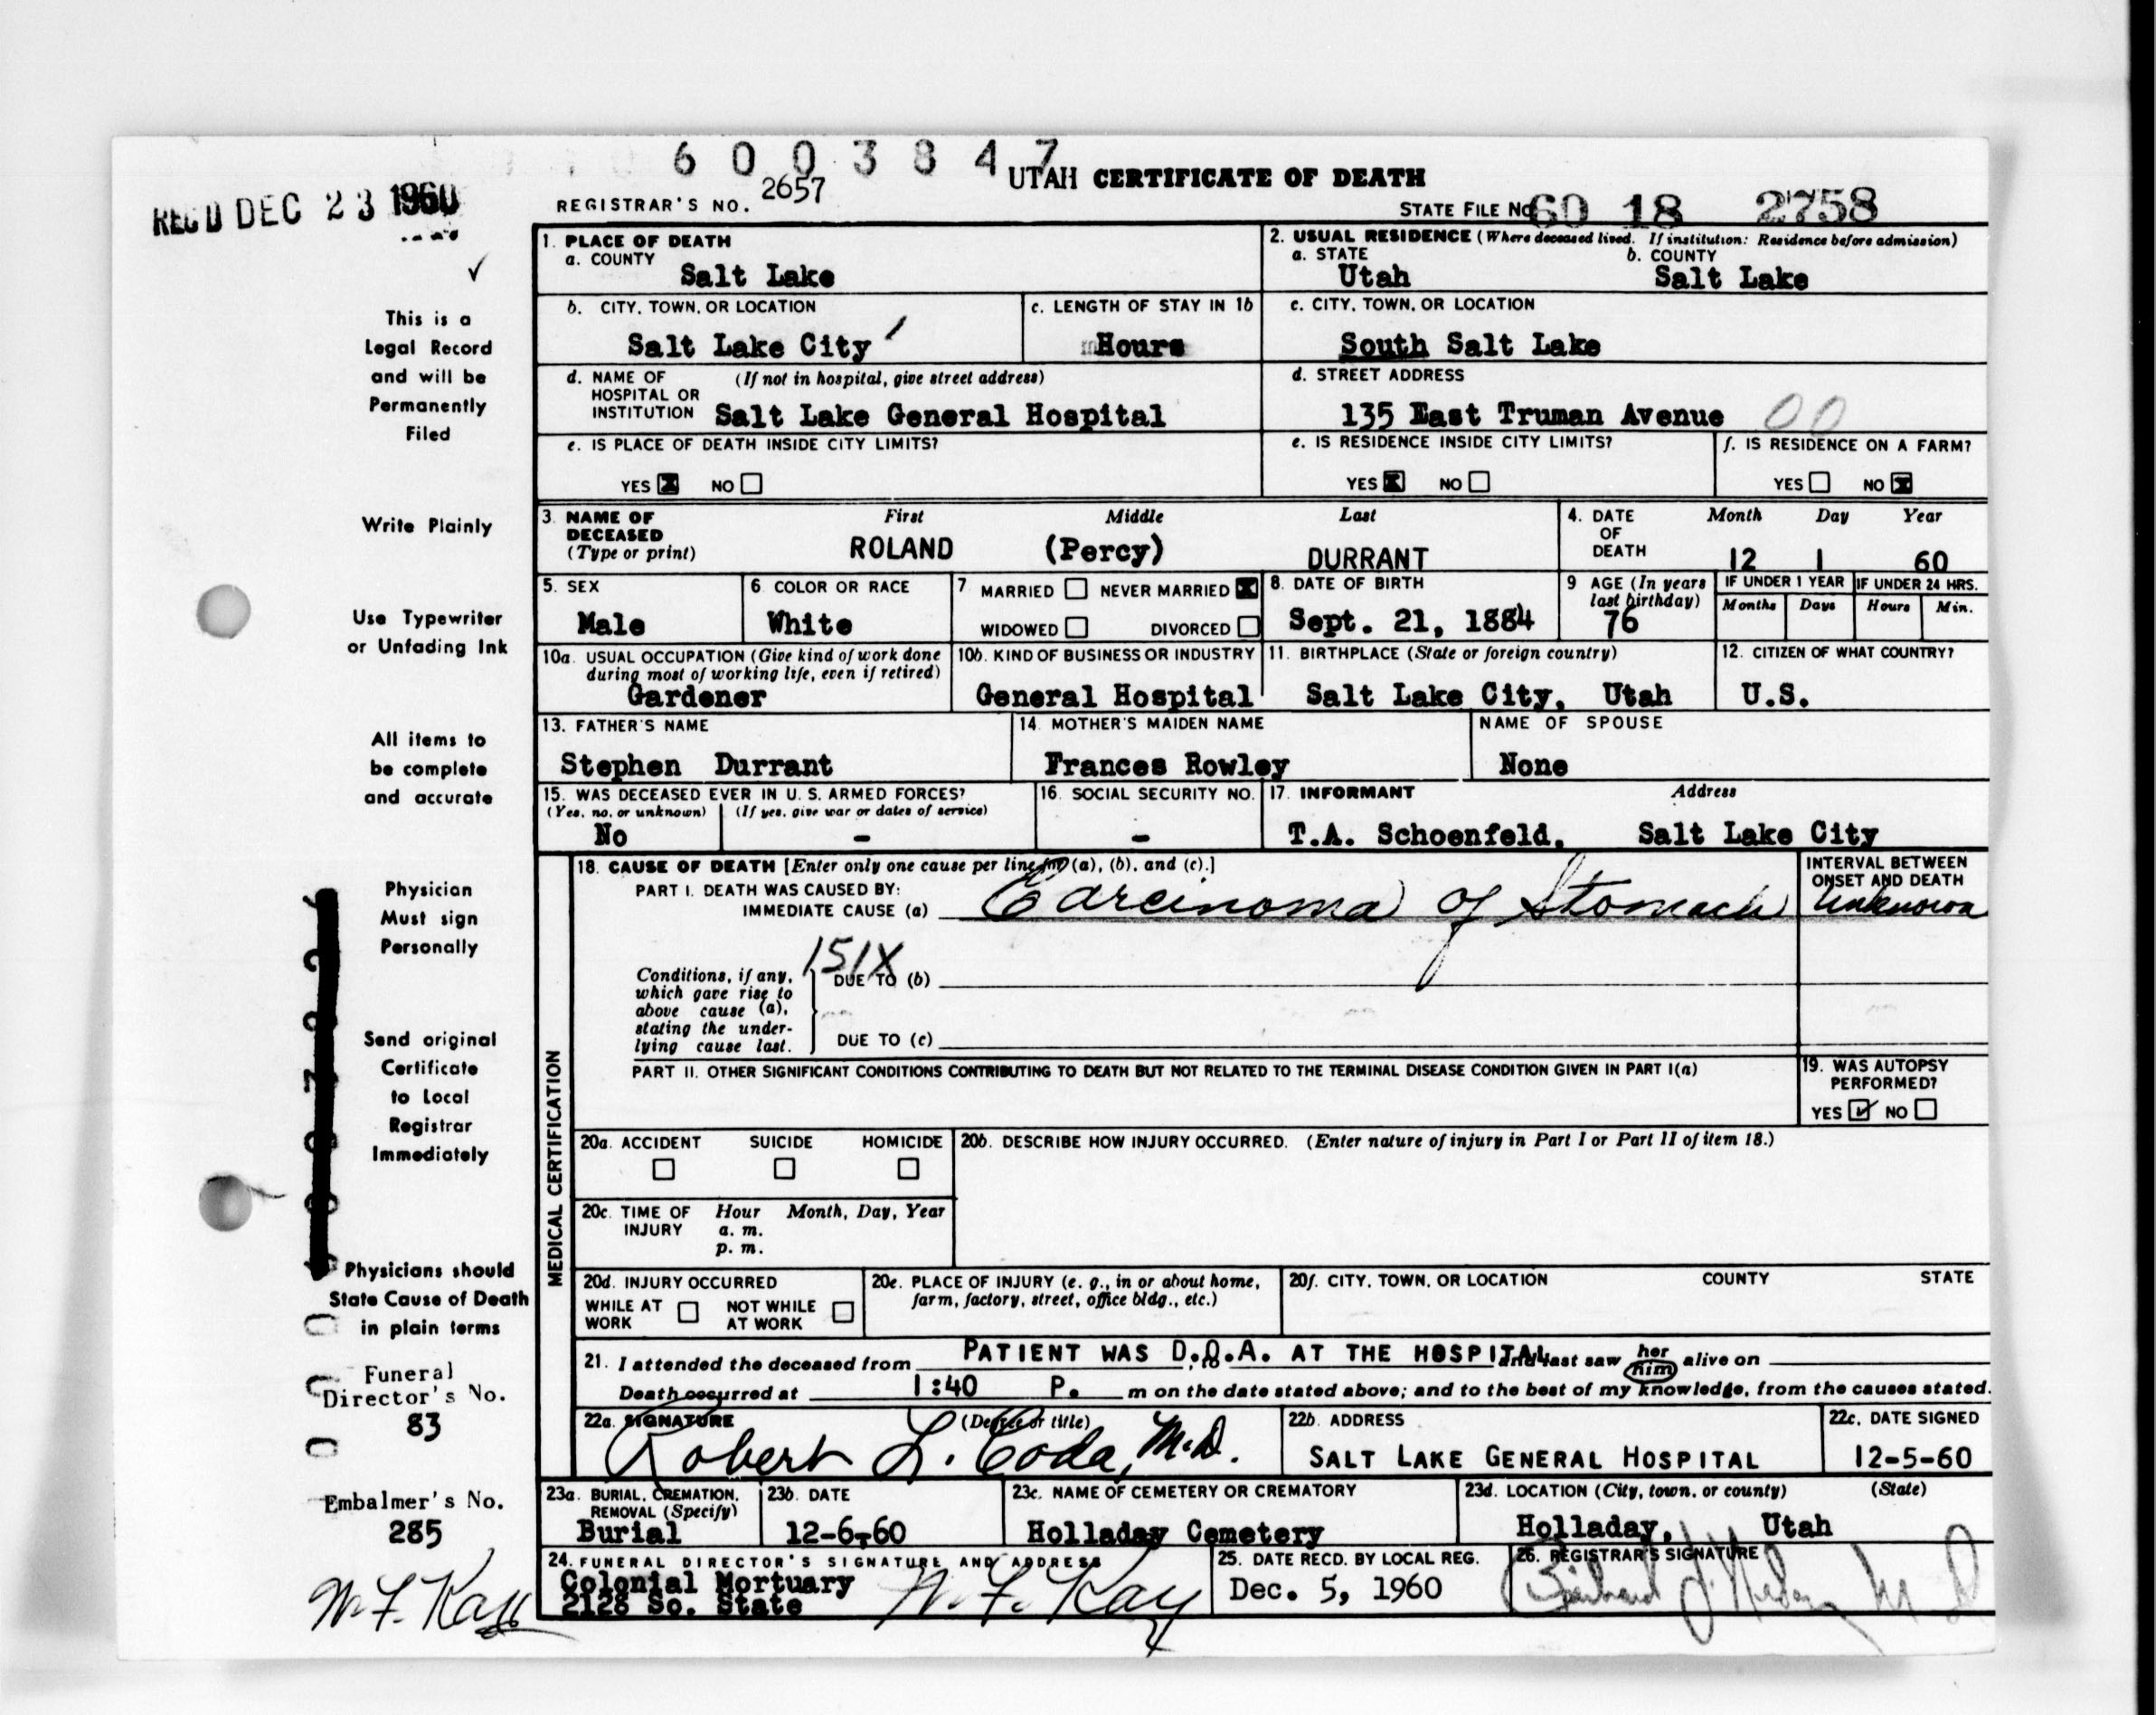 6003847
REC'D DEC 23 1960
UTAH CERTIFICATE OF DEATH
REGISTRAR'S NO. 2657
STATE FILE NO. 60 18 2758
This is a
Legal Record
and will be
Permanently
Filed
Write Plainly
Use Typewriter
or Unfading Ink
All items to
be complete
and accurate
Physician
Must sign
Personally
Send original
Certificate
to Local
Registrar
Immediately
Physicians should
State Cause of Death
in plain terms
Funeral
Director's No.
83
Embalmer's No.
285
W. F. Kay
1. PLACE OF DEATH
a. COUNTY
Salt Lake
2. USUAL RESIDENCE (Where deceased lived. If institution: Residence before admission)
a. STATE b. COUNTY
Utah Salt Lake
b. CITY, TOWN, OR LOCATION
Salt Lake City
c. LENGTH OF STAY IN 1b
Hours
c. CITY, TOWN, OR LOCATION
South Salt Lake
d. NAME OF (If not in hospital, give street address)
HOSPITAL OR
INSTITUTION Salt Lake General Hospital
d. STREET ADDRESS
135 East Truman Avenue 00
e. IS PLACE OF DEATH INSIDE CITY LIMITS?
YES X NO
e. IS RESIDENCE INSIDE CITY LIMITS?
YES X NO
f. IS RESIDENCE ON A FARM?
YES NO X
3. NAME OF First Middle Last
DECEASED
(Type or print) ROLAND (Percy) DURRANT
4. DATE Month Day Year
OF
DEATH 12 1 60
5. SEX
Male
6 COLOR OR RACE
White
7 MARRIED NEVER MARRIED X
WIDOWED DIVORCED
8. DATE OF BIRTH
Sept. 21, 1884
9 AGE (In years
last birthday)
76
IF UNDER 1 YEAR IF UNDER 24 HRS.
Months Days Hours Min.
10a. USUAL OCCUPATION (Give kind of work done
during most of working life, even if retired)
Gardener
10b. KIND OF BUSINESS OR INDUSTRY
General Hospital
11. BIRTHPLACE (State or foreign country)
Salt Lake City, Utah
12. CITIZEN OF WHAT COUNTRY?
U.S.
13. FATHER'S NAME
Stephen Durrant
14. MOTHER'S MAIDEN NAME
Frances Rowley
NAME OF SPOUSE
None
15. WAS DECEASED EVER IN U. S. ARMED FORCES?
(Yes, no, or unknown) (If yes, give war or dates of service)
No -
16. SOCIAL SECURITY NO.
-
17. INFORMANT Address
T.A. Schoenfeld, Salt Lake City
MEDICAL CERTIFICATION
18. CAUSE OF DEATH [Enter only one cause per line for (a), (b), and (c).]
PART I. DEATH WAS CAUSED BY:
IMMEDIATE CAUSE (a) Carcinoma of Stomach
INTERVAL BETWEEN
ONSET AND DEATH
Unknown
151X
Conditions, if any,
which gave rise to
above cause (a),
stating the under-
lying cause last.
DUE TO (b)
DUE TO (c)
PART II. OTHER SIGNIFICANT CONDITIONS CONTRIBUTING TO DEATH BUT NOT RELATED TO THE TERMINAL DISEASE CONDITION GIVEN IN PART I(a)
19. WAS AUTOPSY
PERFORMED?
YES ✓ NO
20a. ACCIDENT SUICIDE HOMICIDE
20b. DESCRIBE HOW INJURY OCCURRED. (Enter nature of injury in Part I or Part II of item 18.)
20c. TIME OF Hour Month, Day, Year
INJURY a. m.
p. m.
20d. INJURY OCCURRED
WHILE AT NOT WHILE
WORK AT WORK
20e. PLACE OF INJURY (e. g., in or about home,
farm, factory, street, office bldg., etc.)
20f. CITY, TOWN, OR LOCATION COUNTY STATE
21. I attended the deceased from PATIENT WAS D.O.A. AT THE HOSPITAL and last saw her him alive on
Death occurred at 1:40 P. m on the date stated above; and to the best of my knowledge, from the causes stated.
22a. SIGNATURE (Degree or title)
Robert L. Coda, M.D.
22b. ADDRESS
SALT LAKE GENERAL HOSPITAL
22c. DATE SIGNED
12-5-60
23a. BURIAL, CREMATION,
REMOVAL (Specify)
Burial
23b. DATE
12-6-60
23c. NAME OF CEMETERY OR CREMATORY
Holladay Cemetery
23d. LOCATION (City, town, or county) (State)
Holladay, Utah
24. FUNERAL DIRECTOR'S SIGNATURE AND ADDRESS
Colonial Mortuary
2128 So. State W. F. Kay
25. DATE RECD. BY LOCAL REG.
Dec. 5, 1960
26. REGISTRAR'S SIGNATURE